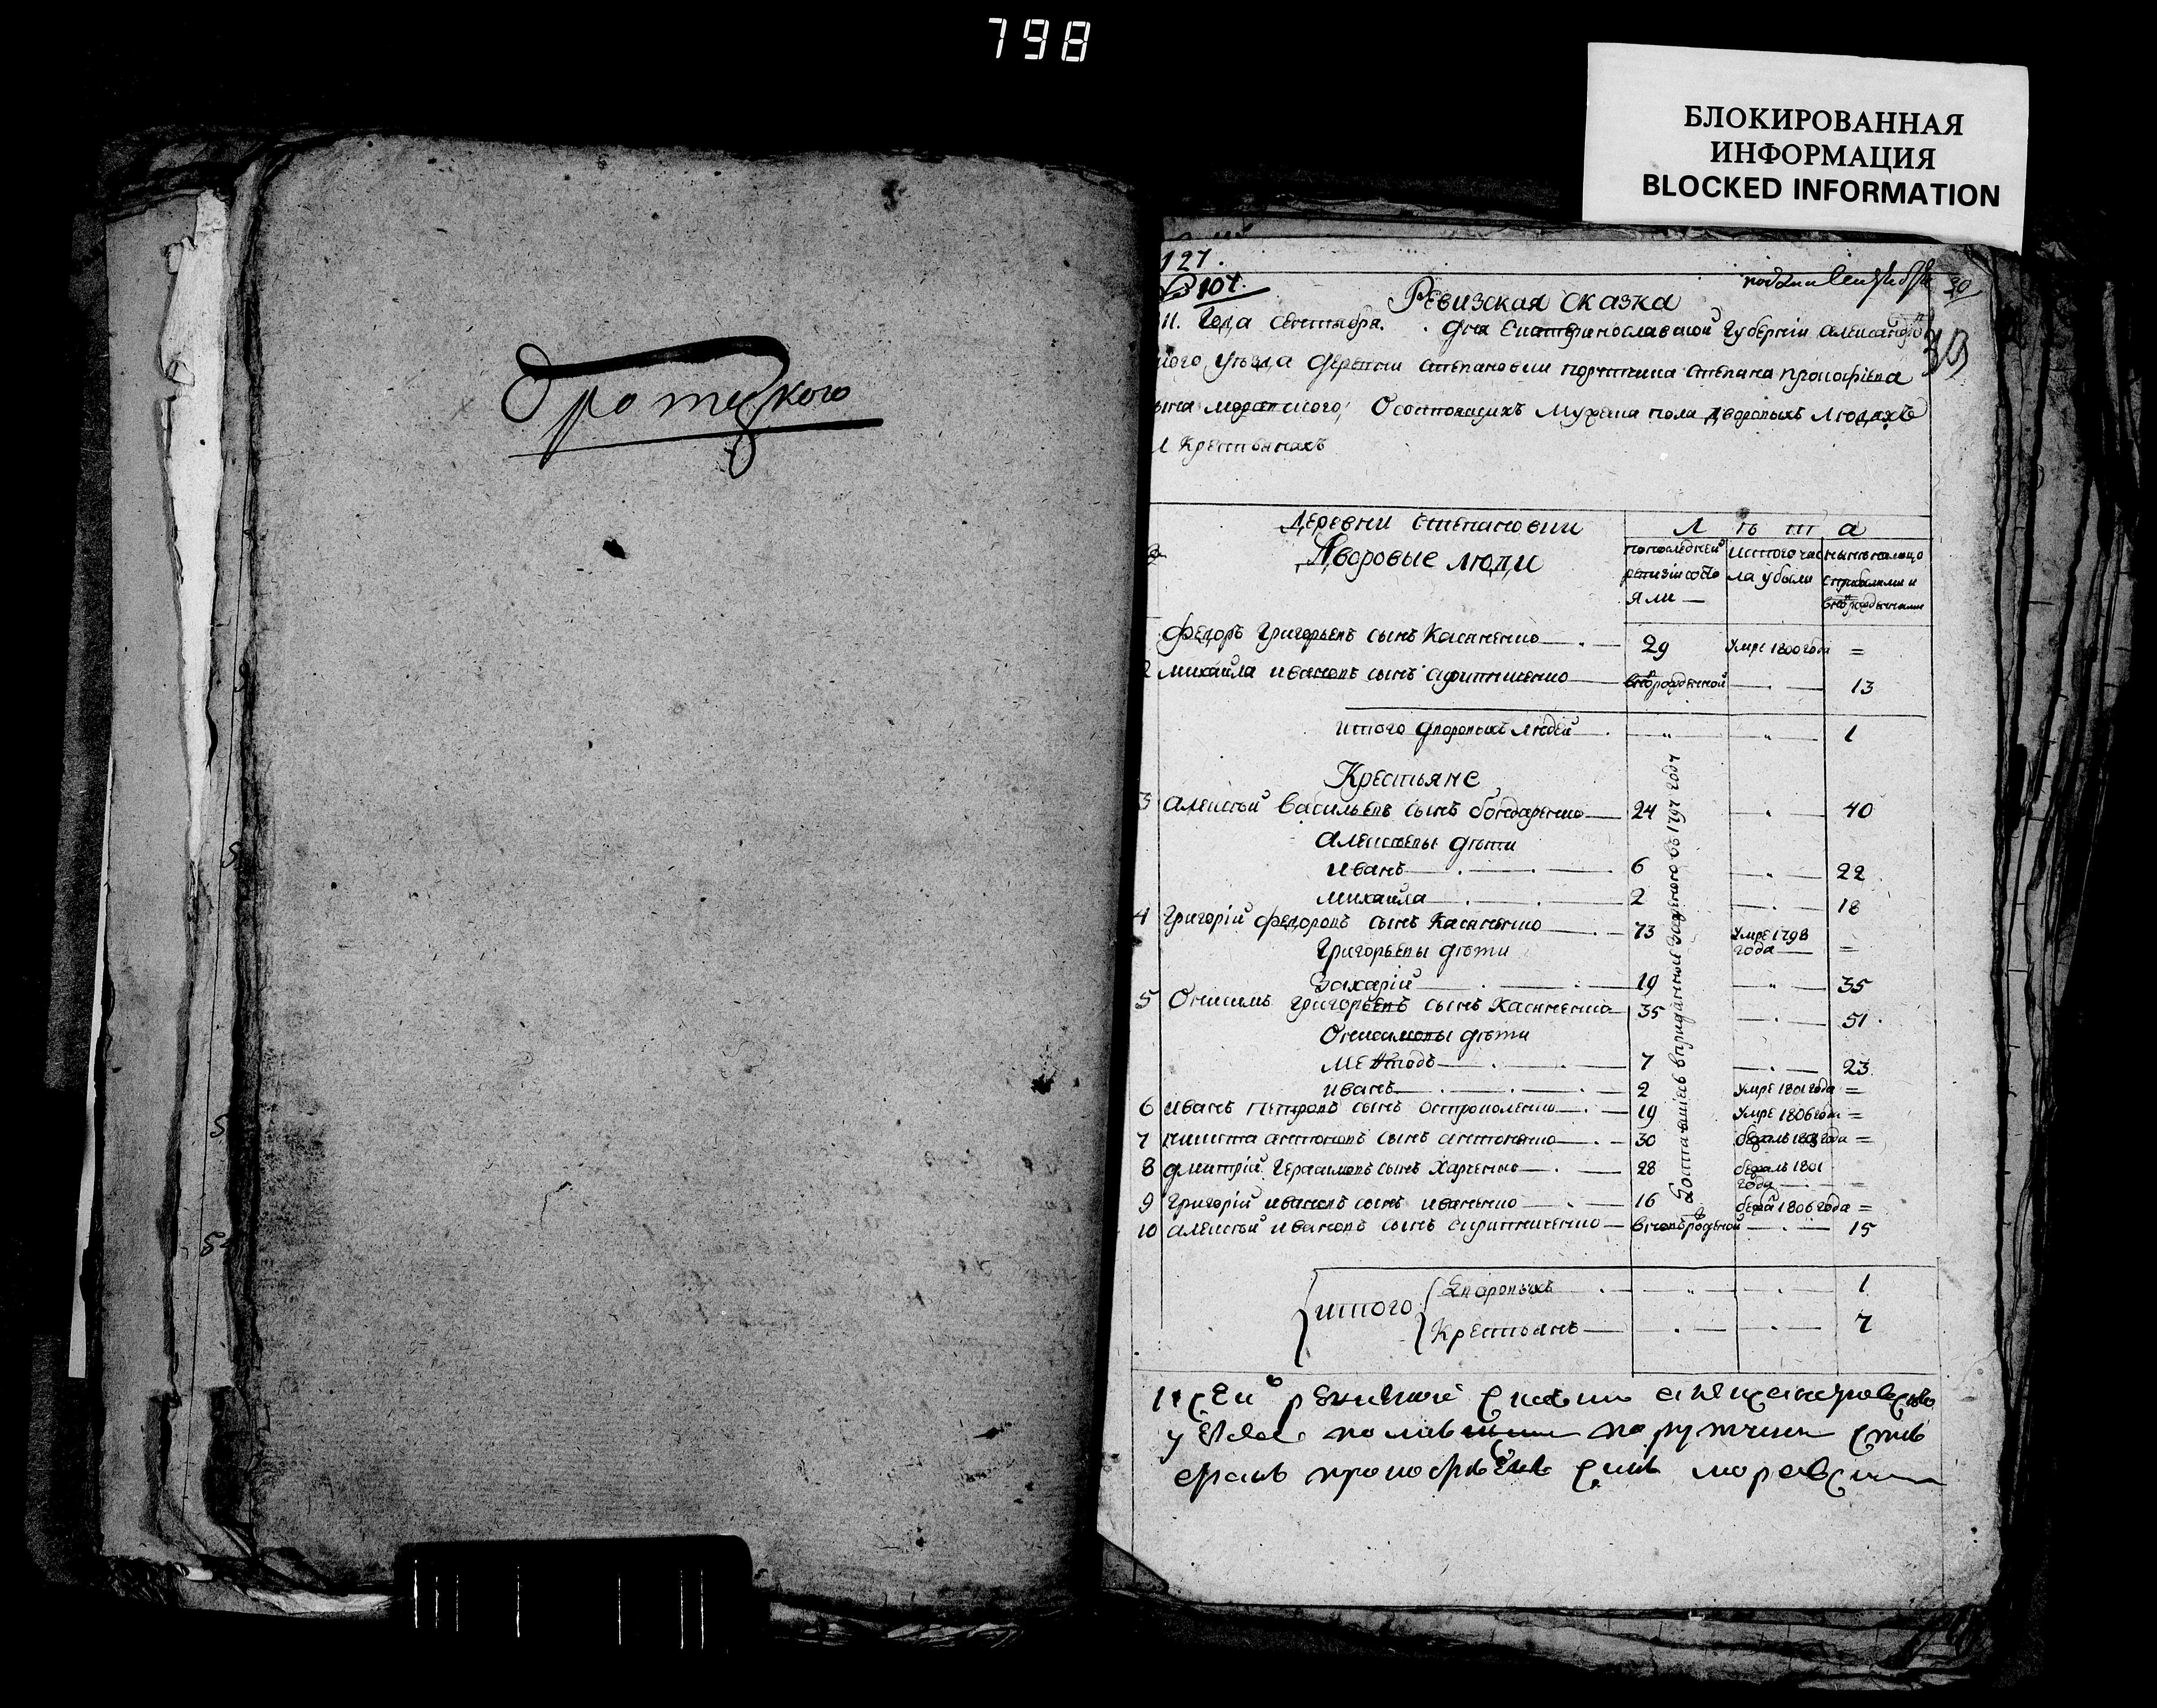 798
БЛОКИРОВАННАЯ
ИНФОРМАЦИЯ
BLOCKED INFORMATION
127.
№ 107.
30
Ревизская сказка
11. Года сентября. дня Екатеринославской Губернии Александро
кого, уезда деревни степановки порутчика степана прокофиева
сына моравского, О состоящихъ Мужска пола дворовыхъ людяхъ
и Крестьянахъ
Деревни степановки
Дворовые люди
Л ѣ т а
по последней ревизии состояли
ис того числа убыли
ныне на лицо с прибылыми и вновь рожденными
Федоръ Григорьевъ сынъ Касяненко 29 Умре 1800 года =
2 михайла ивановъ сынъ вновь рожденной 13
итого дворовыхъ людей 1
Крестьяне
3 алексей васильевъ сынъ бондаренко 24 40
алексеевы дѣти
иванъ 6 22
михайла 2 18
4 Григорий федоровъ сынъ Касяненко 73 Умре 1798 года =
Григорьевы дѣти
Захарий 19 35
5 Онисимъ Григорьевъ сынъ Касяненко 35 51
Онисимовы дѣти
мефодъ 7 23
иванъ 2 умре 1801 года =
6 иванъ петровъ сынъ 19 умре 1806 года =
7 никита антоновъ сынъ антоненко 30 бежалъ 1803 года =
8 дмитрий Герасимовъ сынъ Харченко 28 бежалъ 1801 года =
9 Григорий ивановъ сынъ иваненко 16 бежалъ 1806 года =
10 алексей ивановъ сынъ вновь рожденной 15
в 1797 году
итого
Дворовыхъ 1
Крестьянъ 7
К сей ревизской скаски александровского
уезда помещикъ порутчикъ степанъ
прокофьевъ сынъ моравский